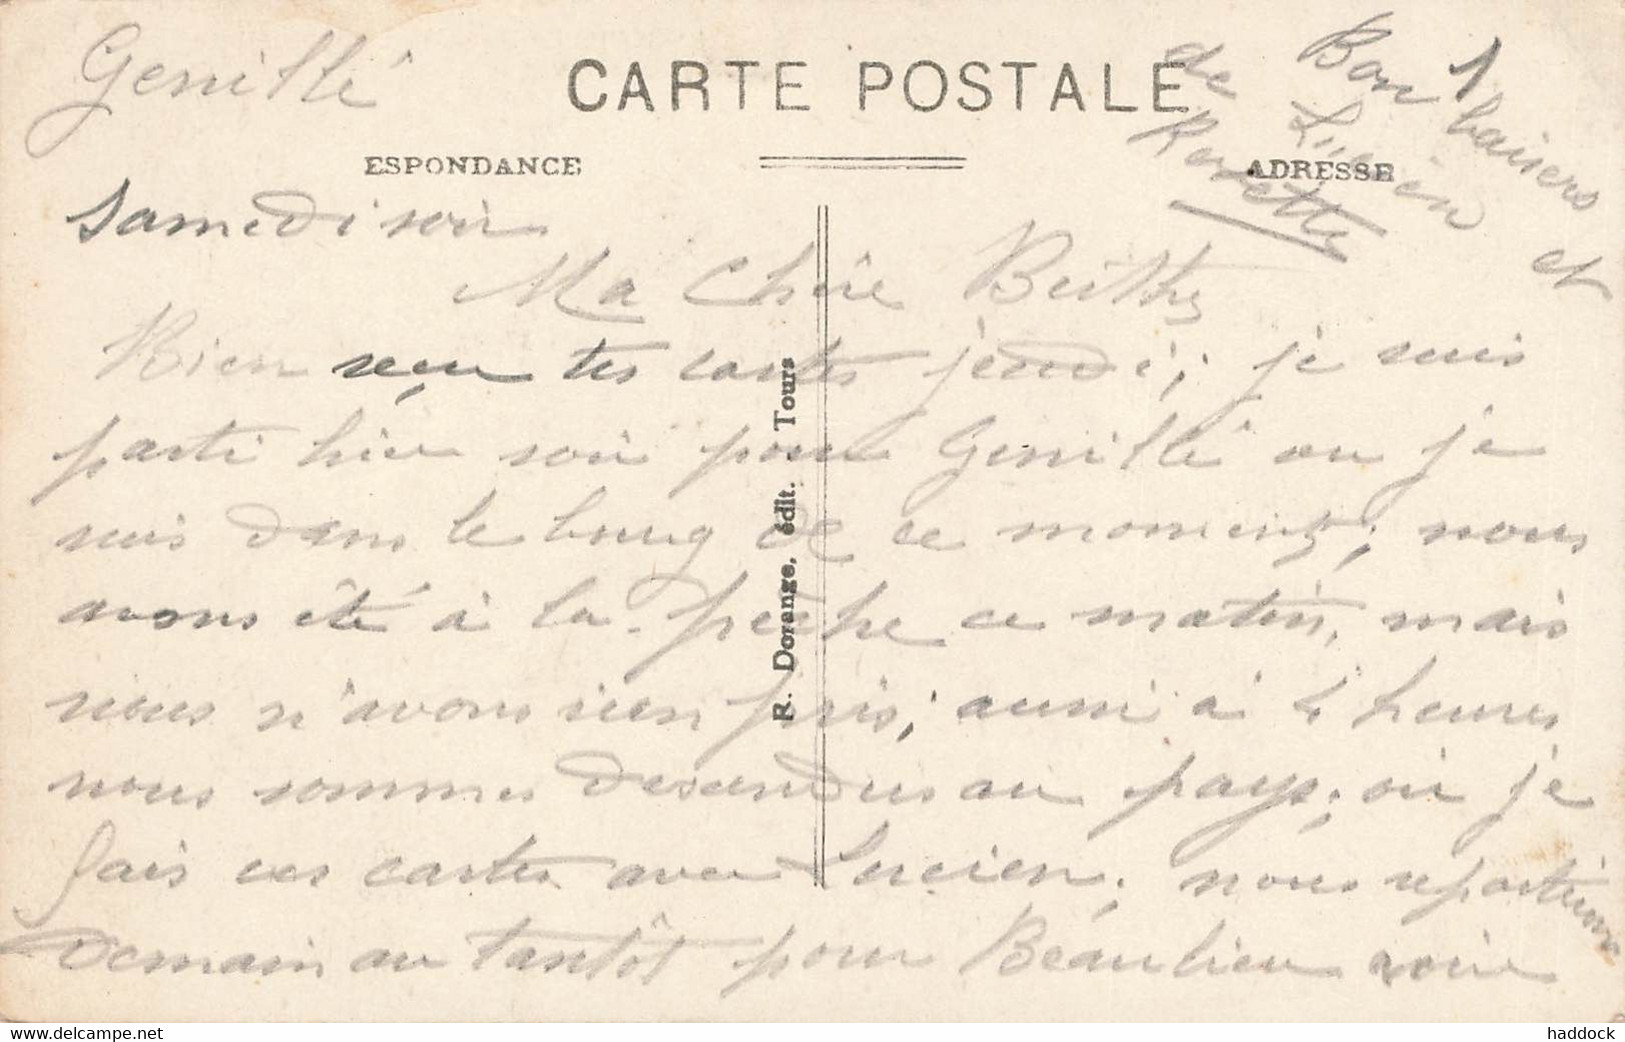 Genillé
CARTE POSTALE
ESPONDANCE
ADRESSE
1
Bon baisers
de Lucien et
samedi soir
Ma Chère Berthe
Bien reçu tes cartes jeudi; je suis
parti hier soir pour Genillé ou je
suis dans le bourg de ce moment; nous
avons été à la pêche ce matin, mais
nous n'avons rien pris; aussi à 4 heures
nous sommes descendus au pays; où je
fais ces cartes avec Lucien; nous repartirons
demain au tantôt pour Beaulieu voir
R. Dorange, édit. Tours
haddock